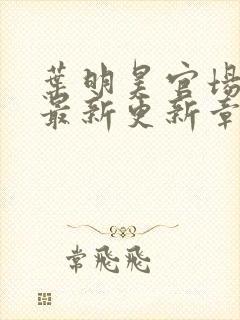 葉明昊官場
最新更新章
常飛飛